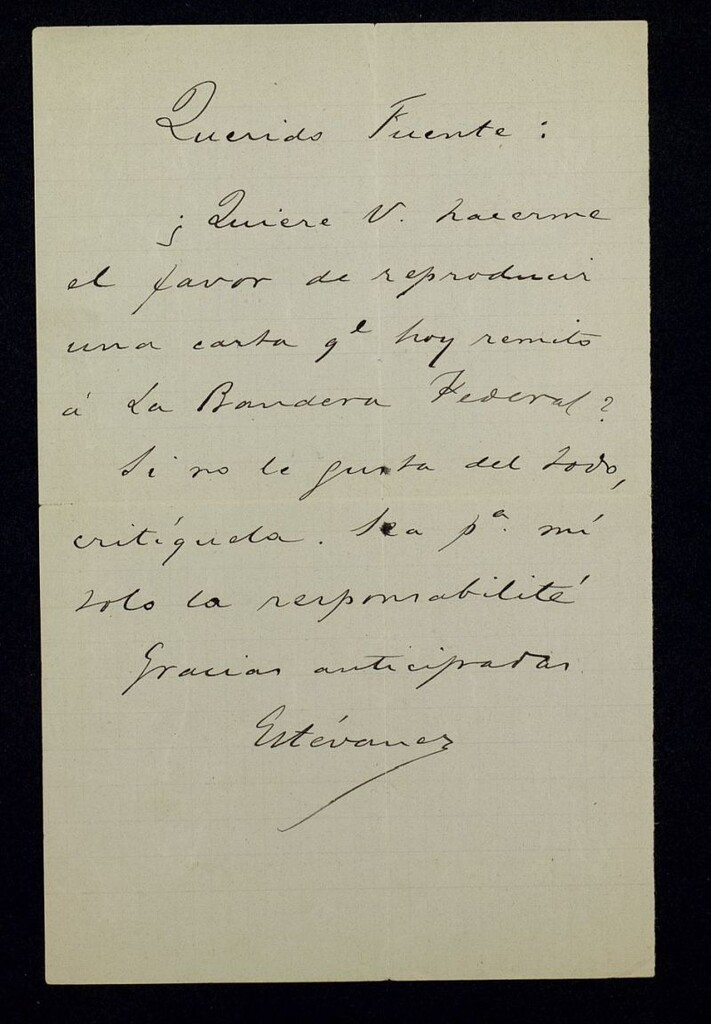 Querido Fuente:
¿Quiere V. hacerme
el favor de reproducir
una carta qe hoy remito
á La Bandera Federal?
Si no le gusta del todo,
critíquela. Sea pa. mí
solo la responsabilité
Gracias anticipadas
Estévanez